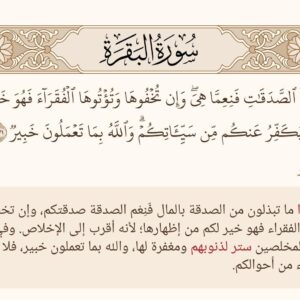 سُورَةُ البَقَرَةِ
الصَّدَقَٰتِ فَنِعِمَّا هِيَۖ وَإِن تُخْفُوهَا وَتُؤْتُوهَا ٱلْفُقَرَآءَ فَهُوَ خَ
يُكَفِّرُ عَنكُم مِّن سَيِّـَٔاتِكُمْۗ وَٱللَّهُ بِمَا تَعْمَلُونَ خَبِيرٌ
ما تبذلون من الصدقة بالمال فَنِعْم الصدقة صدقتكم، وإن تخ
الفقراء فهو خير لكم من إظهارها؛ لأنه أقرب إلى الإخلاص. وفي
المخلصين ستر لذنوبهم ومغفرة لها، والله بما تعملون خبير، فلا
ء من أحوالكم.